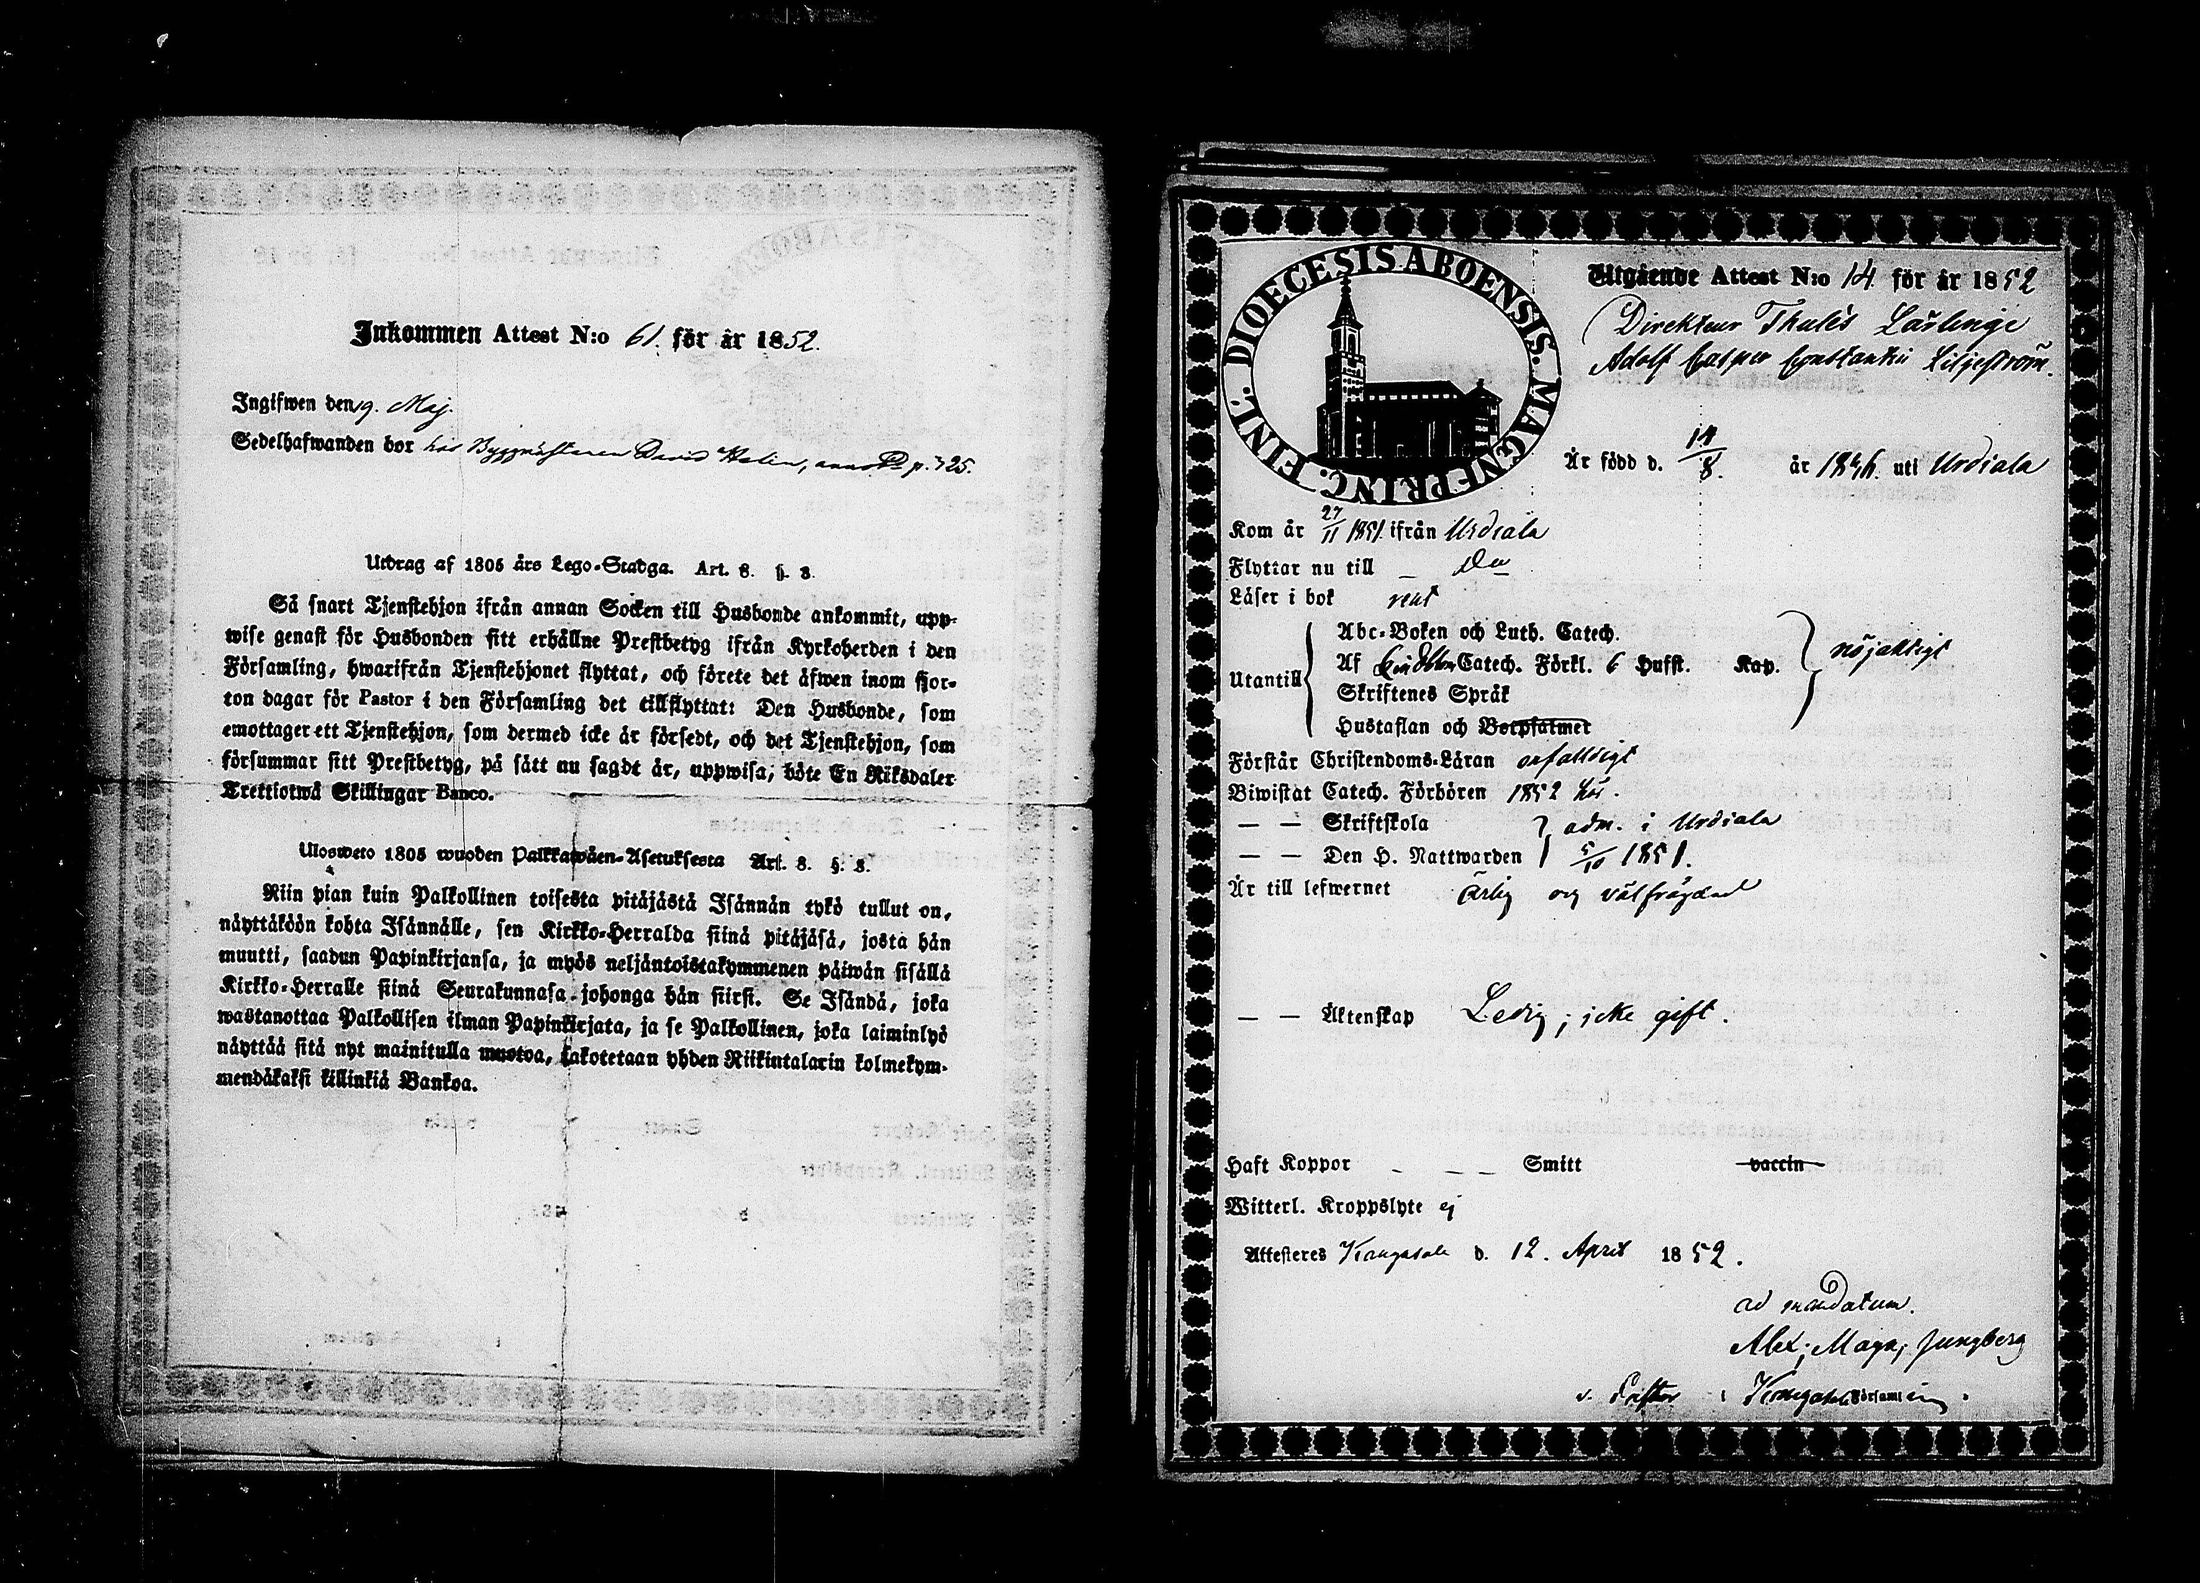 Inkommen Attest N:o 61. för år 1852.
Ingifwen den 19. Maj.
Sedelhafwanden bor hos Byggmästaren David Helin, p. 325.
Utdrag af 1805 års Lego-Stadga. Art. 8. §. 3.
Så snart Tjenstehjon ifrån annan Socken till Husbonde ankommit, upp-
wise genast för Husbonden sitt erhållne Prestbetyg ifrån Kyrkoherden i den
Församling, hwarifrån Tjenstehjonet flyttat, och förete det äfwen inom fjor-
ton dagar för Pastor i den Församling det tillflyttat: Den Husbonde, som
emottager ett Tjenstehjon, som dermed icke är försedt, och det Tjenstehjon, som
försummar sitt Prestbetyg, på sätt nu sagdt är, uppwisa, böte En Riksdaler
Trettiotwå Skillingar Banco.
Ulosweto 1805 wuoden Palkkawäen-Asetuksesta Art. 8. §. 3.
Niin pian kuin Palkollinen toisesta pitäjästä Isännän tykö tullut on,
näyttäköön kohta Isännälle, sen Kirkko-Herralda siinä pitäjäsä, josta hän
muutti, saadun Papinkirjansa, ja myös neljäntoistakymmenen päiwän sisällä
Kirkko-Herralle siinä Seurakunnasa johonga hän siirsi. Se Isändä, joka
wastanottaa Palkollisen ilman Papinkirjata, ja se Palkollinen, joka laiminlyö
näyttää sitä nyt mainitulla muotoa, sakotetaan yhden Riikintalarin kolmekym-
mendäkaksi killinkiä Bankoa.
DIOECESIS ABOENSIS. MAGNI PRINC. FINL.
Utgående Attest N:o 14. för år 1852
Direkteur Thulés Lärlinge
Adolf Casper Constantin Liljeström.
Är född d. 14/8. år uti Urdiala
Kom år 27/11 1851. ifrån Urdiala
Flyttar nu till _ Do
Läser i bok rent
Utantill
Abc-Boken och Luth. Catech.
Af Catech. Förkl. 6 Hufst. Kap. nöjaktigt
Skriftenes Språk
Hustaflan och Botpsalmer
Förstår Christendoms-Läran enfalldigt
Biwistat Catech. Förhören 1852 här.
— — Skriftskola adm. i Urdiala
— — Den H. Nattwarden 5/10 1851.
Är till lefwernet ärlig och välfrägdad
— — Äktenskap Ledig; icke gift.
Haft Koppor - — — Smitt vaccin
Witterl. Kroppslyte ej
Attesteres Kangasala d. 12. April 1852.
ad mandatum.
Alex; Magn; Ljungberg
v. Pastor i Kangasala Församling.